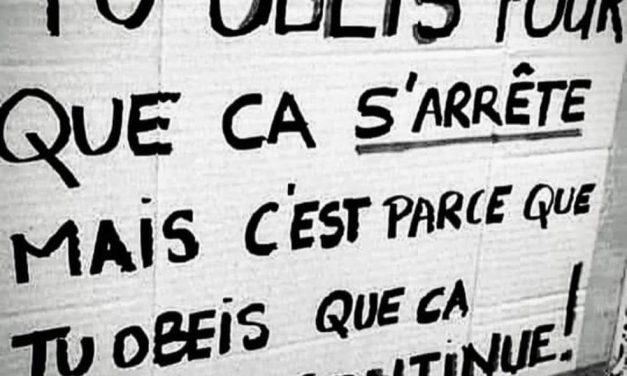 TU OBEiS POUR
QUE CA S'ARRÊTE
MAiS C'EST PARCE QUE
TU OBEiS QUE CA
CONTiNUE!